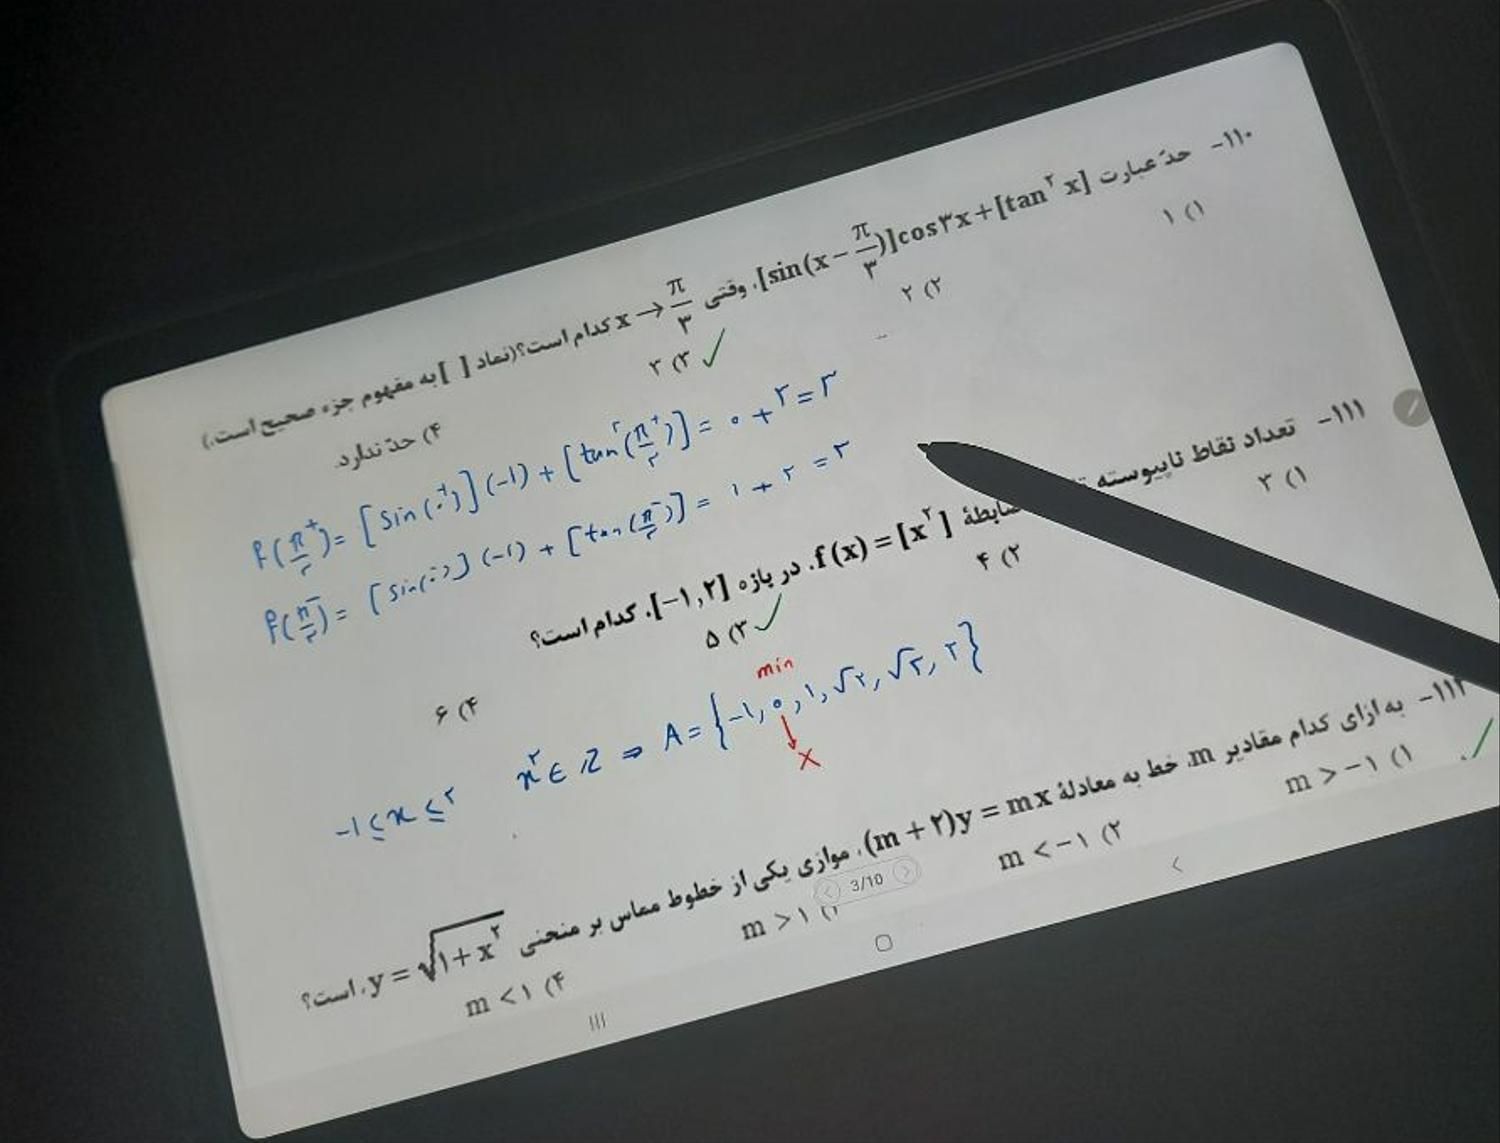 ۱۱۰- حدّ عبارت [sin(x − π/۳)]cos۳x+[tan^۲ x]، وقتی x → π/۳ کدام است؟(نماد [ ] به مفهوم جزء صحیح است.)
۱) ۱
۲) ۲
۳) ۳ ✓
۴) حدّ ندارد.
f(π/۳⁺) = [sin(۰⁺)](-۱) + [tan^۲(π/۳⁺)] = ۰ + ۳ = ۳
f(π/۳⁻) = [sin(۰⁻)](-۱) + [tan(π/۳⁻)] = ۱ + ۲ = ۳
۱۱۱- تعداد نقاط ناپیوسته ضابطهٔ f(x) = [x^۲]، در بازه [−۱,۲]، کدام است؟
۱) ۳
۲) ۴
۳) ۵ ✓
۴) ۶
min
-۱ ≤ x ≤ ۲ x^۲ ∈ Z ⇒ A = {-۱, ۰, ۱, √۲, √۳, ۲}
×
۱۱۲- به ازای کدام مقادیر m، خط به معادلهٔ (m + ۲)y = mx، موازی یکی از خطوط مماس بر منحنی y = √۱+x^۲، است؟
۱) m > −۱ ✓
۲) m < −۱
m > ۱
۴) m < ۱
3/10